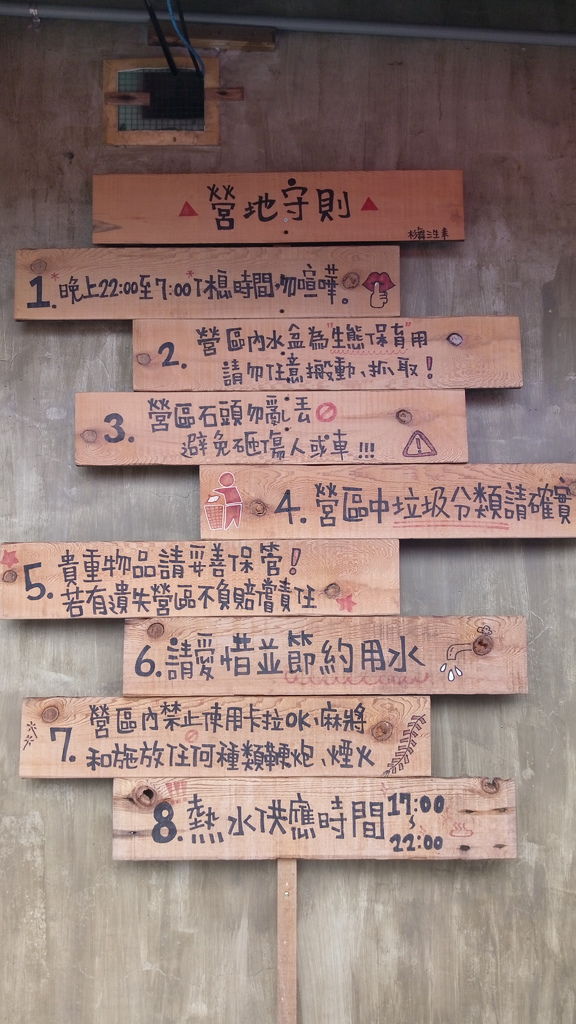 營地守則
1.晚上22:00至7:00休憩時間,勿喧嘩。
2.營區內水盆為"生態保育"用
請勿任意搬動、抓取!
3.營區石頭勿亂丟
避免砸傷人或車!!!
4.營區中垃圾分類請確實
5.貴重物品請妥善保管!
若有遺失營區不負賠償責任
6.請愛惜並節約用水
7.營區內禁止使用卡拉OK、麻將
和施放任何種類鞭炮、煙火
!!!
8.熱水供應時間17:00
~
22:00